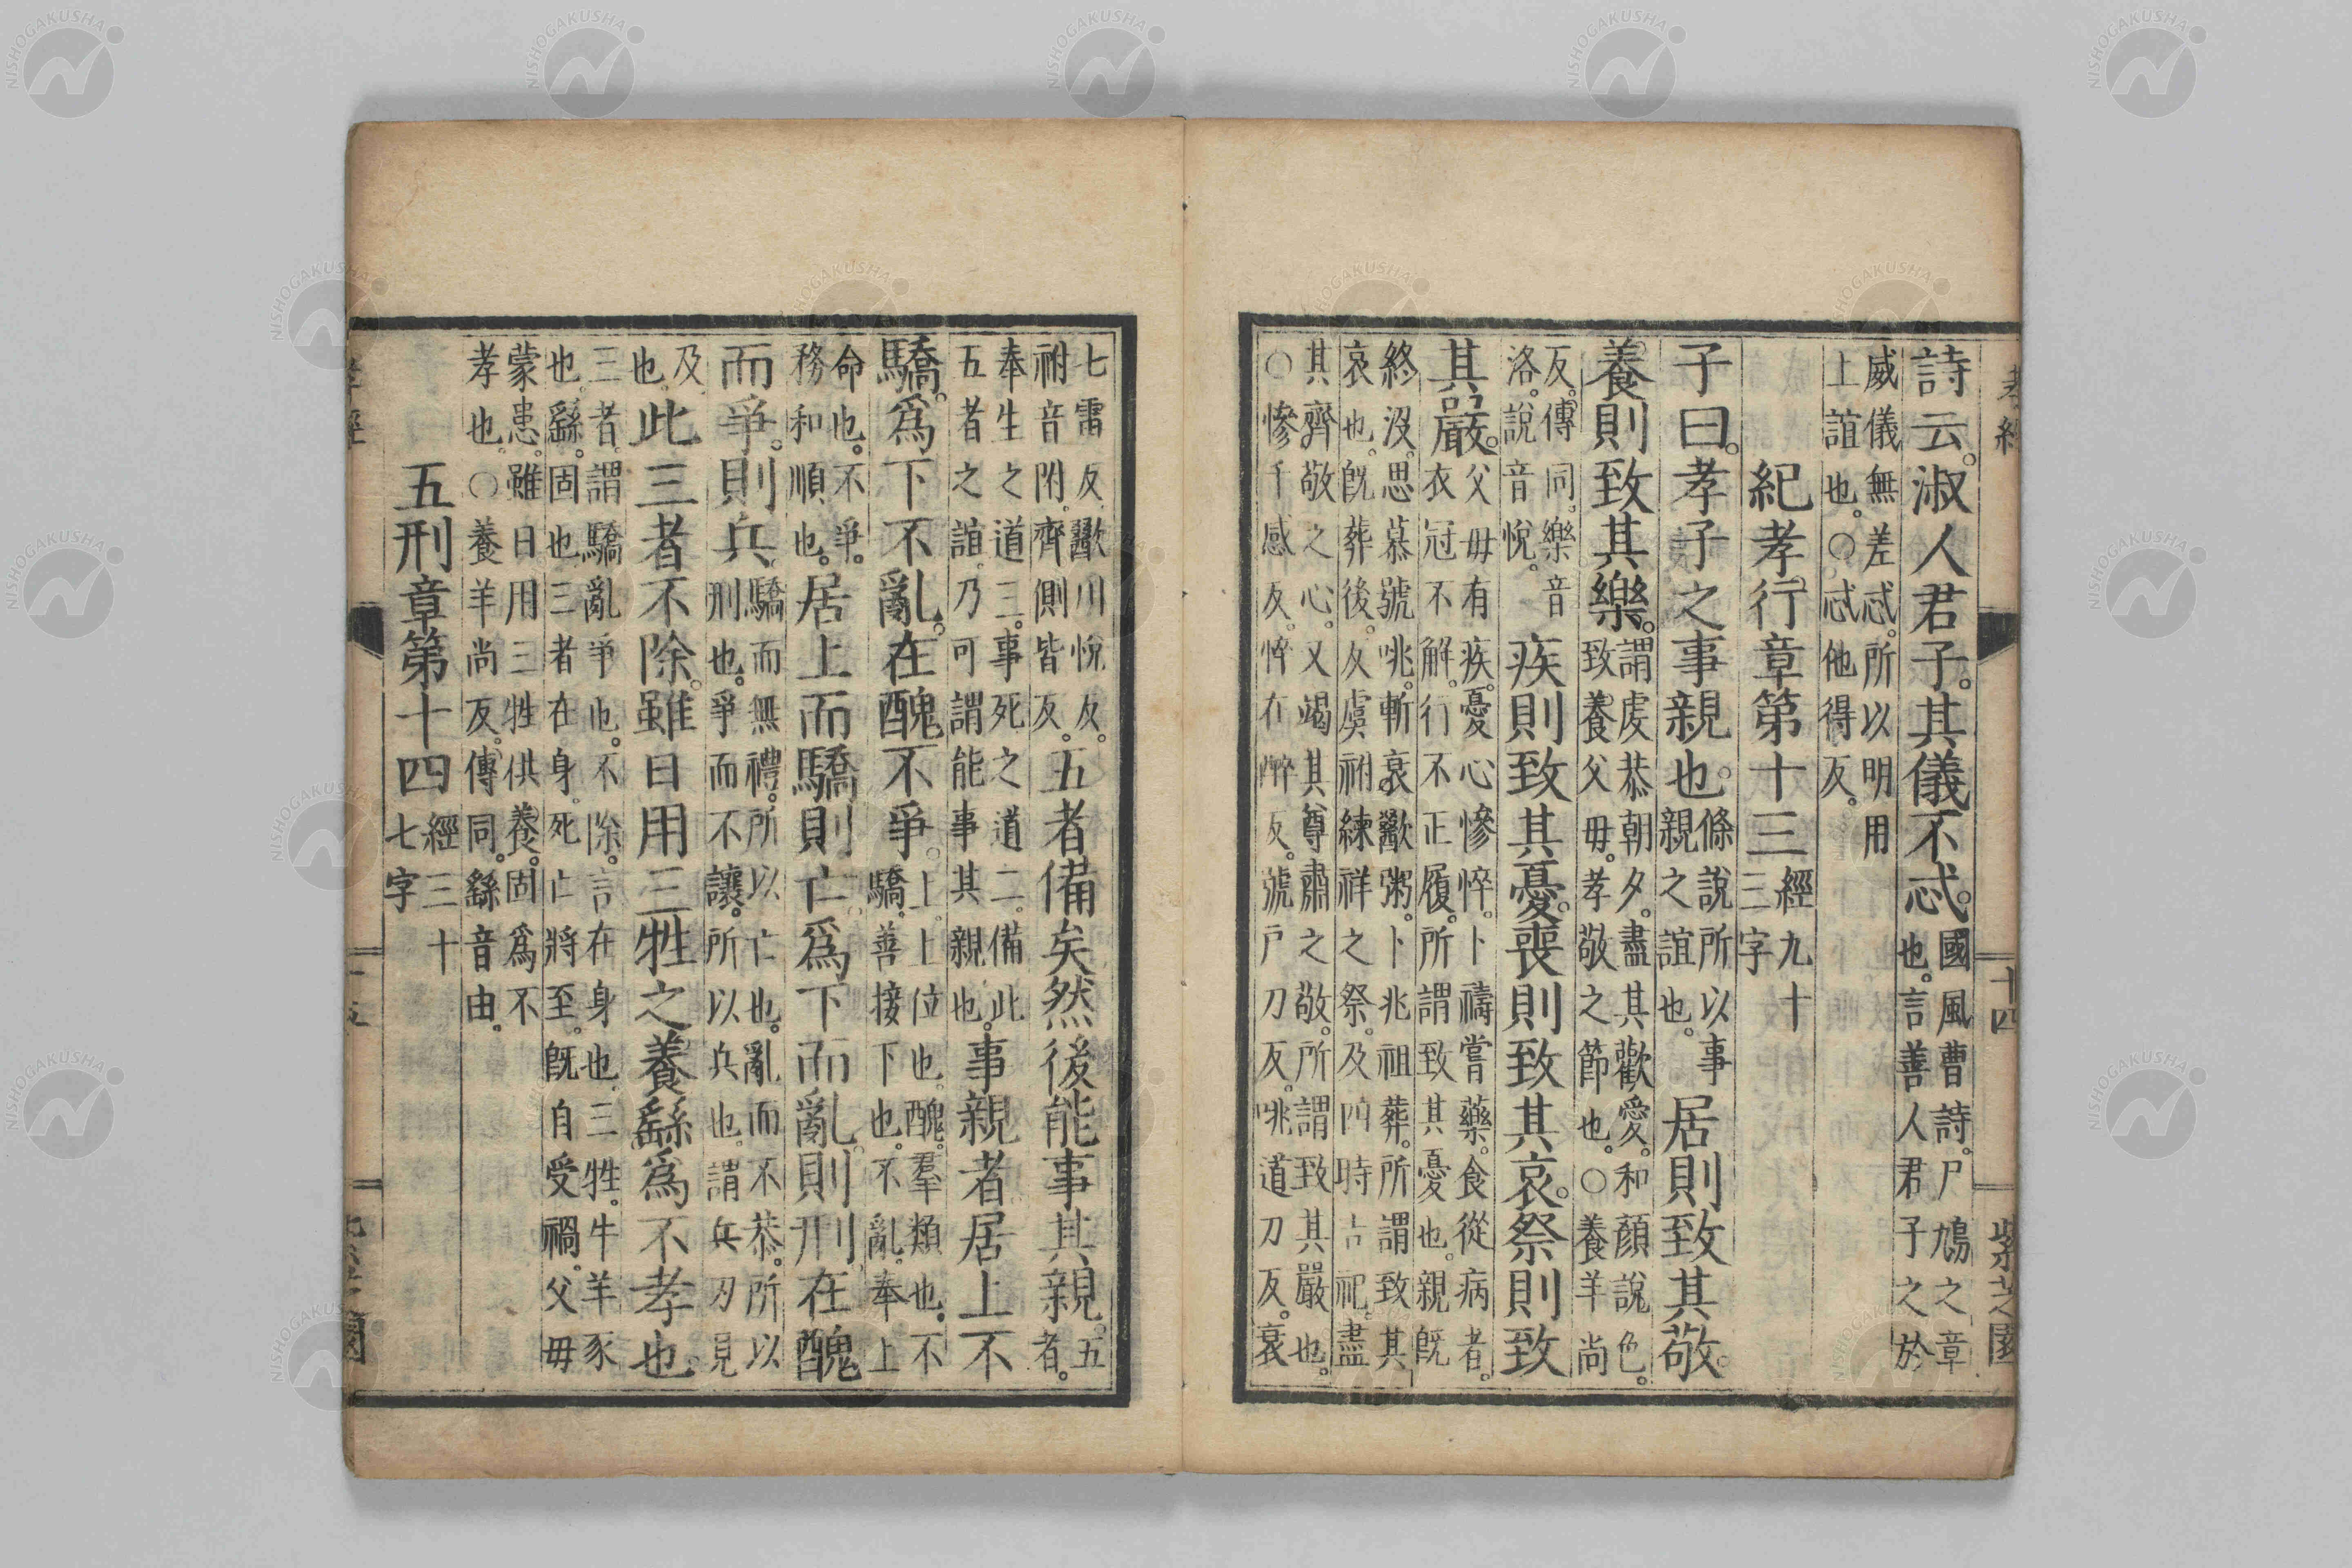 孝經　十四　紫芝園
詩云。淑人君子。其儀不忒。
國風曹詩。尸鳩之章
也。言善人君子之於
威儀無差忒。所以明用
上誼也。○忒他得反。
紀孝行章第十三
經九十
三字
子曰。孝子之事親也。
條說所以事
親之誼也。
居則致其敬。
養則致其樂。
謂虔恭朝夕。盡其歡愛。和顏說色。
致養父毋。孝敬之節也。○養羊尚
反。傳同。樂音
洛。說音悅。
疾則致其憂。喪則致其哀。祭則致
其嚴。
父毋有疾。憂心慘悴。卜禱嘗藥。食從病者。
衣冠不解。行不正履。所謂致其憂也。親旣
終沒。思慕號咷。斬衰歠粥。卜兆祖葬。所謂致其
哀也。旣葬後。反虞祔練祥之祭。及四時吉祀。盡
其齊敬之心。又竭其尊肅之敬。所謂致其嚴也。
○慘千感反。悴在醉反。號戶刀反。咷道刀反。衰
七雷反歠川悅反。
祔音附。齊側皆反。
五者備矣然後能事其親。
五
者。
奉生之道三。事死之道二。備此
五者之誼。乃可謂能事其親也。
事親者居上不
驕。爲下不亂。在醜不爭。
○上。上位也。醜。羣類也。不
驕。善接下也。不亂。奉上
命也。不爭。
務和順也。
居上而驕則亡爲下而亂則刑在醜
而爭。則兵
驕而無禮。所以亡也。亂而不恭。所以
刑也。爭而不讓。所以兵也。謂兵刃見
及
也。
此三者不除。雖日用三牲之養繇爲不孝也。
三者。謂驕亂爭也。不除。言在身也。三牲。牛羊豕
也。繇。固也三者在身。死亡將至。旣自受禍。父毋
蒙患。雖日用三牲供養。固爲不
孝也。○養羊尚反。傳同。繇音由。
五刑章第十四
經三十
七字
孝經
NISHOGAKUSHA